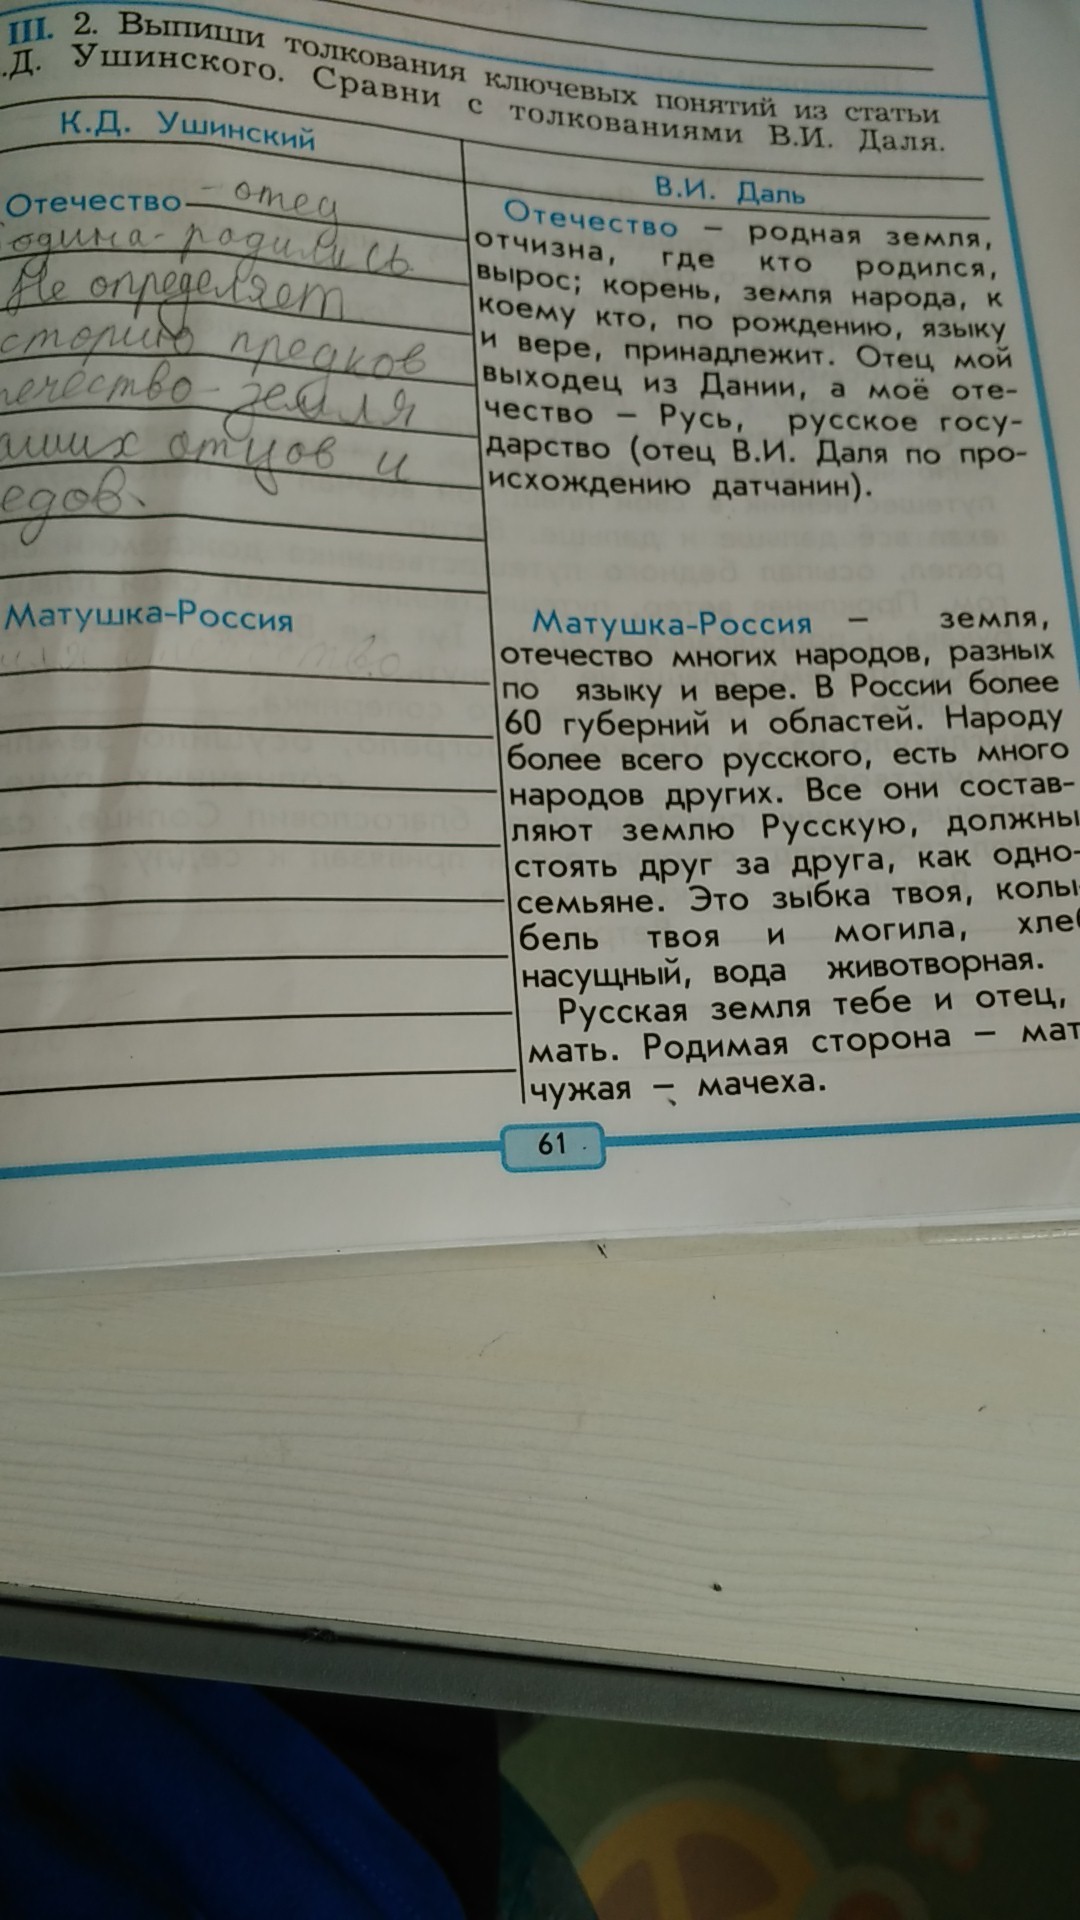 III. 2. Выпиши толкования ключевых понятий из статьи
.Д. Ушинского. Сравни с толкованиями В.И. Даля.
К.Д. Ушинский
Отечество - отец
одина - родились
Не определяет
сторию предков
течество - земля
аших отцов и
едов.
Матушка-Россия
В.И. Даль
Отечество – родная земля,
отчизна, где кто родился,
вырос; корень, земля народа, к
коему кто, по рождению, языку
и вере, принадлежит. Отец мой
выходец из Дании, а моё оте-
чество – Русь, русское госу-
дарство (отец В.И. Даля по про-
исхождению датчанин).
Матушка-Россия – земля,
отечество многих народов, разных
по языку и вере. В России более
60 губерний и областей. Народу
более всего русского, есть много
народов других. Все они состав-
ляют землю Русскую, должны
стоять друг за друга, как одно-
семьяне. Это зыбка твоя, колы-
бель твоя и могила, хлеб
насущный, вода животворная.
Русская земля тебе и отец,
мать. Родимая сторона – мат
чужая – мачеха.
61